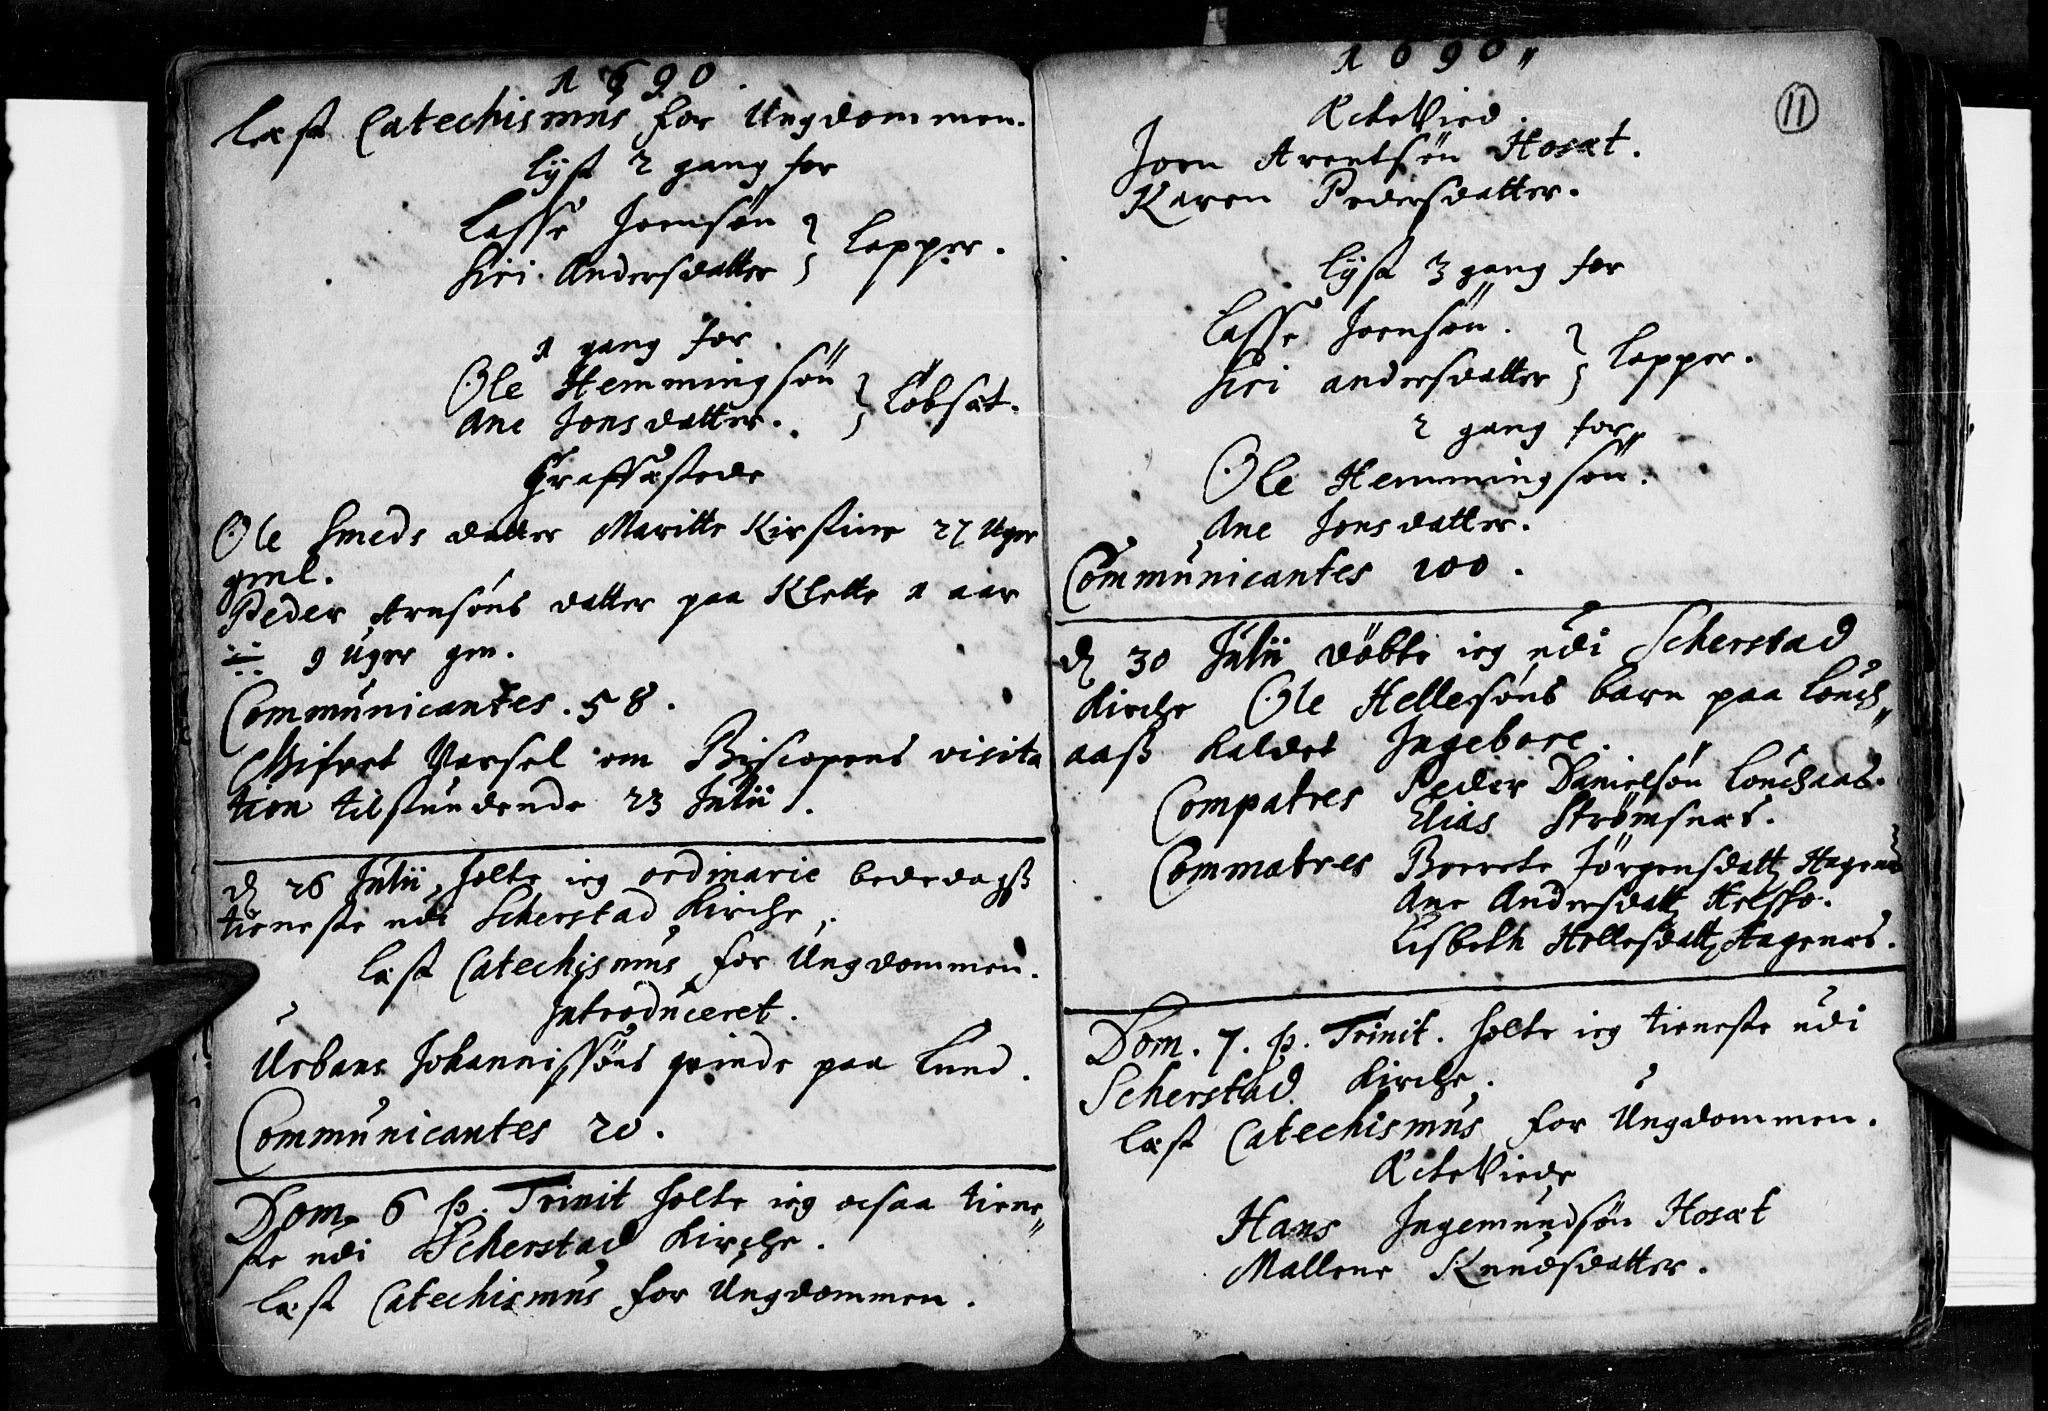 1690.
Læst Catechismus for Ungdommen.
Lyst 2 gang for
Lasse Joensøn
Siri Andersdatter } Lapper.
1 gang for
Ole Hemmingsøn
Ane Jonsdatter. } Löbsæt.
Graffæstede
Ole Smeds datter Maritte Kirstine 27 Uger
gml.
Peder Arnsøns datter paa Klette 1 aar
÷ 9 Uger gm.
Communicantes. 58.
Gifvet Varsel om Biscopens visita
tion tilstundende 23 Julii.
d 26 Julii holte ieg ordinarie bededagß
tieneste udi Scherstad Kirche.
læst Catechismus for Ungdommen.
Introduceret.
Urbans Johannissöns qvinde paa Lund.
Communicantes 20.
Dom. 6 p. Trinit holte ieg ocsaa tiene„
ste udi Scherstad Kirche.
læst Catechismus for Ungdommen.
1690„
11
Ecte Vied.
Joen Arentsøn Hosæt.
Karen Pedersdatter.
Lyst 3 gang for
Lasse Joensøn.
Siri andersdatter } Lapper.
2 gang for
Ole Hemmingsön.
Ane Jonsdatter.
Communicantes 100.
d 30 Julii döbte ieg udi Scherstad
Kirche Ole Hellesöns barn paa Louds„
aaß kaldet Ingebore.
Compatres Peder Danielsøn Loudsaas.
Elias Strømsnæs.
Commatres Berrete Jørgensdatt Hagenæs
Ane Andersdatt
Lisbeth Hellesdatt Hagenæs.
Dom. 7. p. Trinit. holte ieg tieneste udi
Scherstad Kirche.
læst Catechismus for Ungdommen.
Ecte Viede
Hans Ingemundsøn Hosæt
Mallene Knudsdatter.